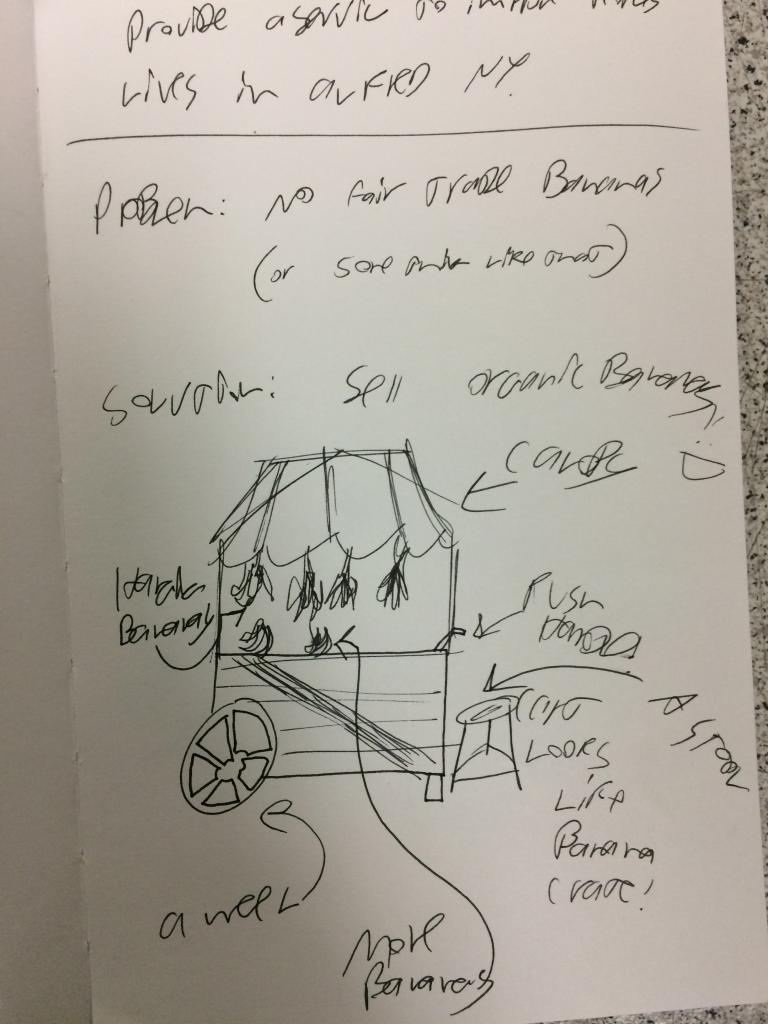 Provide a service to
lives in alfred NY.
Problem: No fair trade Bananas
(or something like that)
Solution: Sell organic Bananas
Canope
Bananas
Push
Handle
A stool
Cart
Looks
Like
Banana
Crate!
a weel
More
Bananas